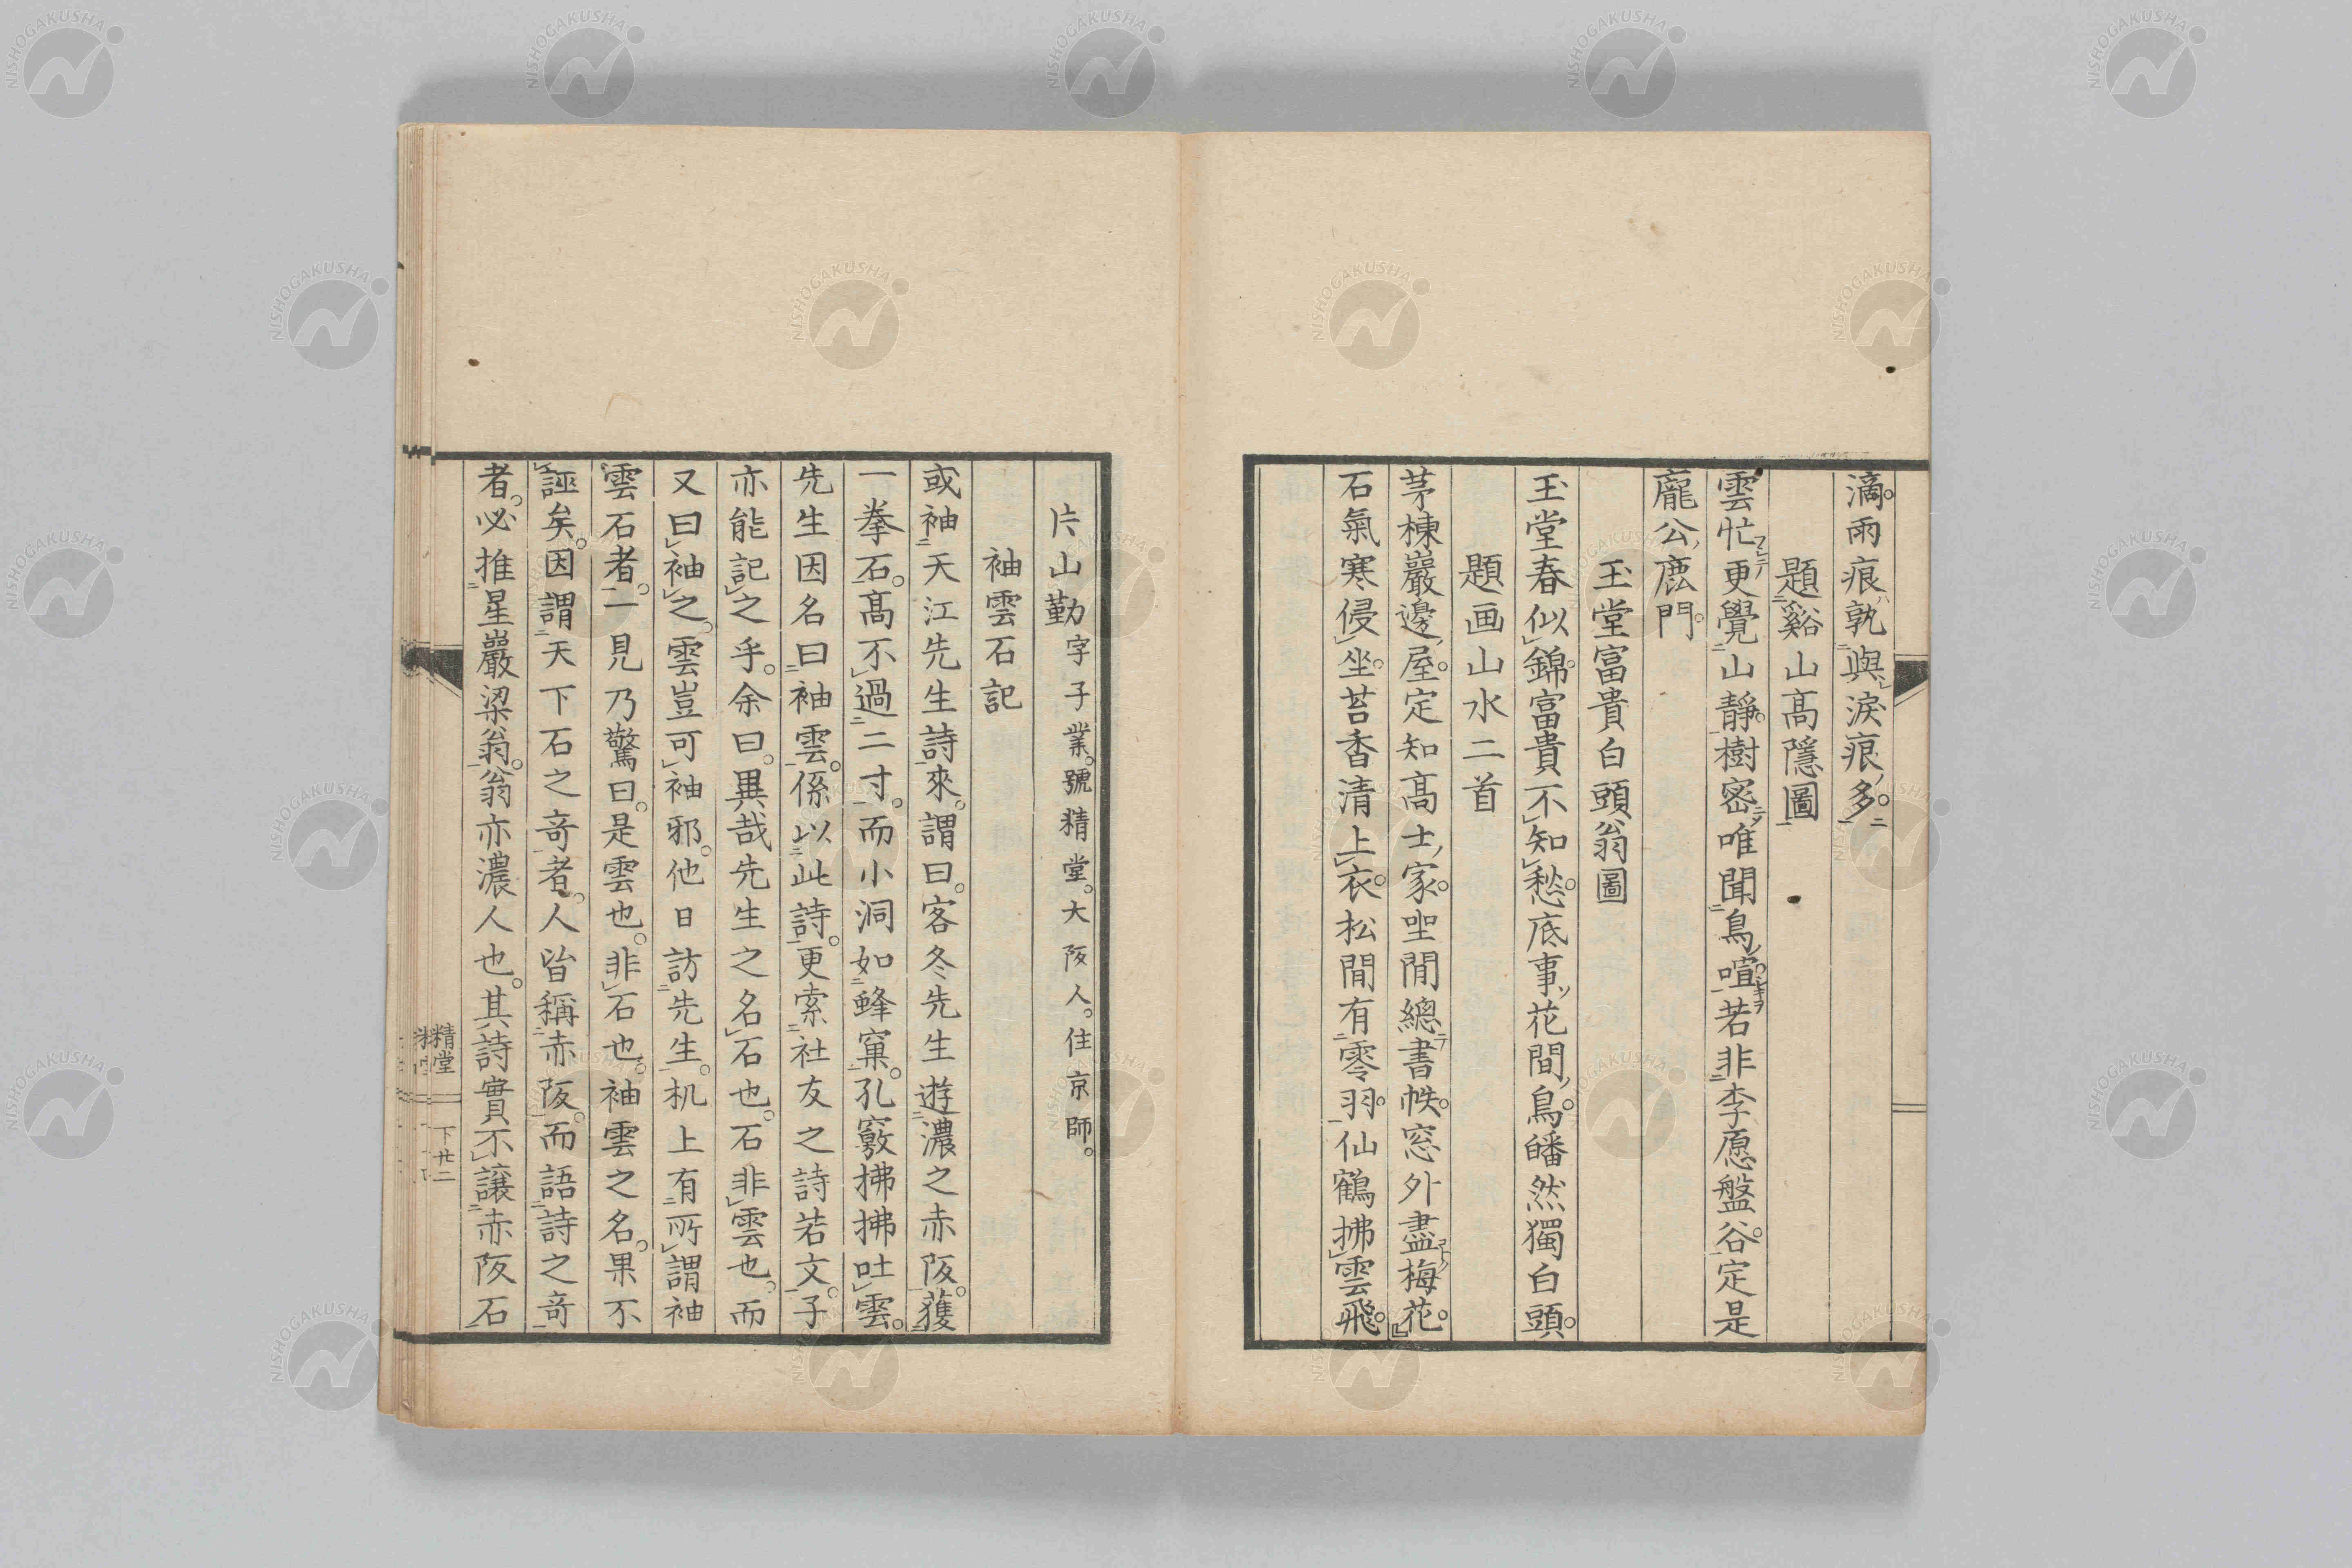 滴雨痕孰與淚痕多
題谿山高隱圖
雲忙更覺山靜樹密唯聞鳥喧若非李愿盤谷定是
龐公鹿門
玉堂富貴白頭翁圖
玉堂春似錦富貴不知愁底事花間鳥皤然獨白頭
題画山水二首
茅棟巖邊屋定知高士家坐間總書帙窓外盡梅花
石氣寒侵坐苔香清上衣松間有零羽仙鶴拂雲飛
片山勤字子業。號精堂。大阪人。住京師。
袖雲石記
或袖天江先生詩來。謂曰。客冬先生遊濃之赤阪。獲
一拳石。高不過二寸。而小洞如蜂窠。孔竅拂拂吐雲。
先生因名曰袖雲。係以此詩。更索社友之詩若文。子
亦能記之乎。余曰。異哉先生之名石也。石非雲也。而
又曰袖之。雲豈可袖邪。他日訪先生。机上有所謂袖
雲石者。一見乃驚曰。是雲也。非石也。袖雲之名。果不
誣矣。因謂天下石之奇者。人皆稱赤阪。而語詩之奇
者。必推星巖梁翁。翁亦濃人也。其詩實不讓赤阪石
精堂
下廿二
NISHOGAKUSHA